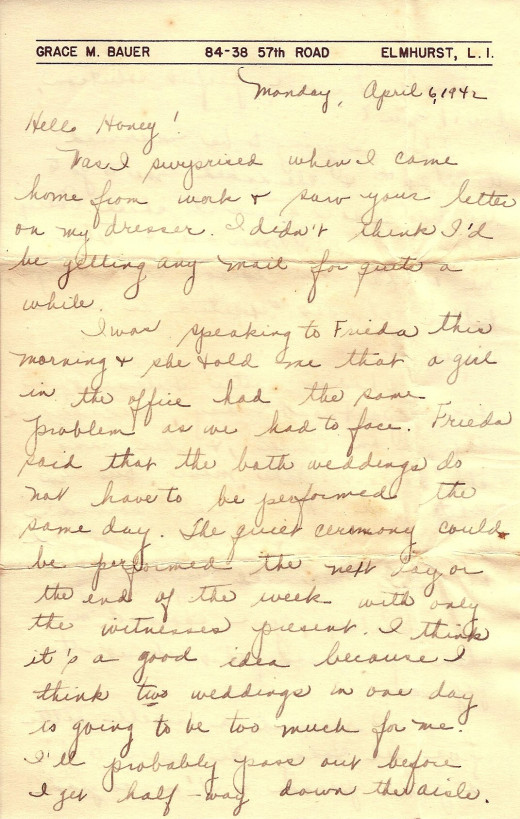 GRACE M. BAUER 84-38 57th ROAD ELMHURST, L. I.
Monday, April 6, 1942
Hello Honey!
Was I surprised when I came
home from work & saw your letter
on my dresser. I didn't think I'd
be getting any mail for quite a
while.
I was speaking to Frieda this
morning & she told me that a girl
in the office had the same
problem as we had to face. Frieda
said that the both weddings do
not have to be performed the
same day. The quiet ceremony could
be performed the next day or
the end of the week with only
the witnesses present. I think
it's a good idea because I
think two weddings in one day
is going to be too much for me.
I'll probably pass out before
I get half-way down the aisle.